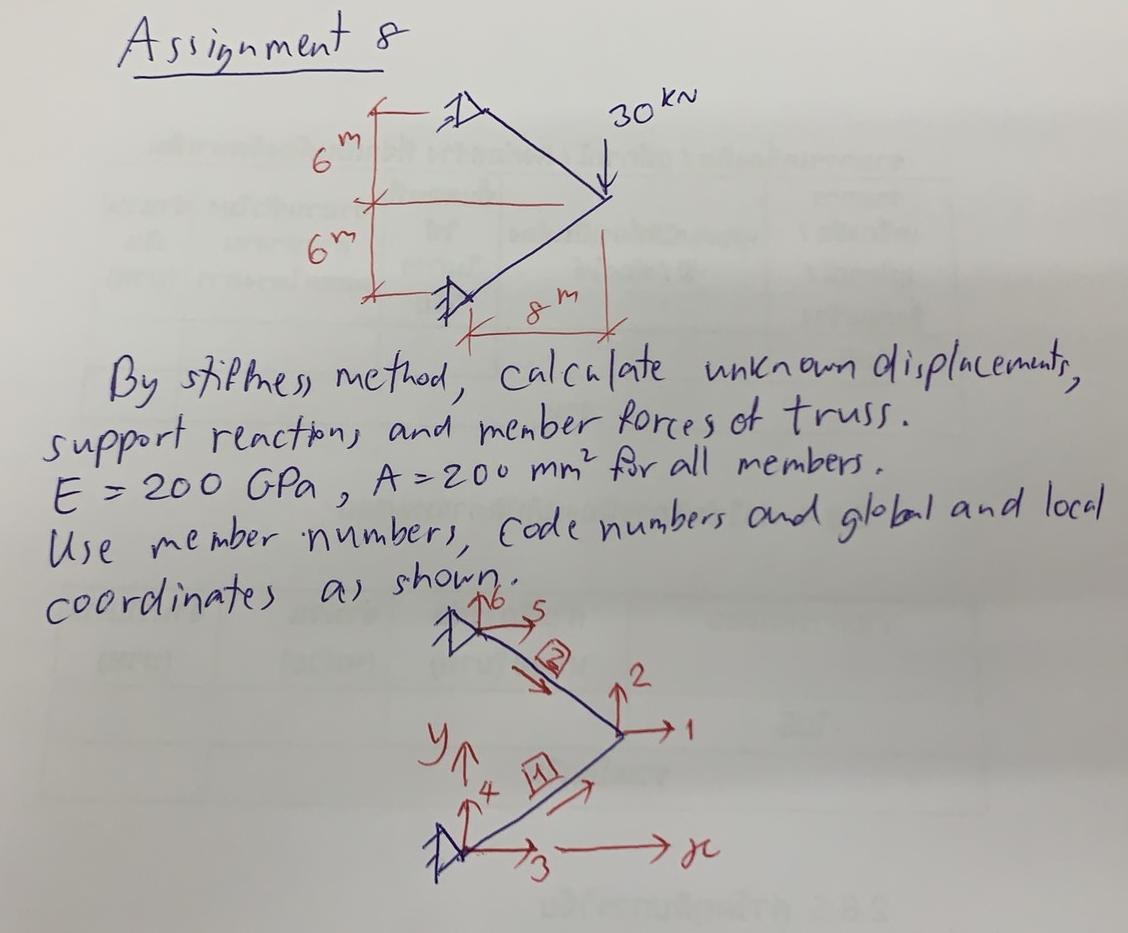 Assignment 8
30 KN
6 m
6 m
8 m
By stiffness method, calculate unknown displacements,
support reactions and member forces of truss.
E = 200 GPa, A = 200 mm² for all members.
Use member numbers, code numbers and global and local
coordinates as shown.
6
5
2
2
1
y
1
4
3
x